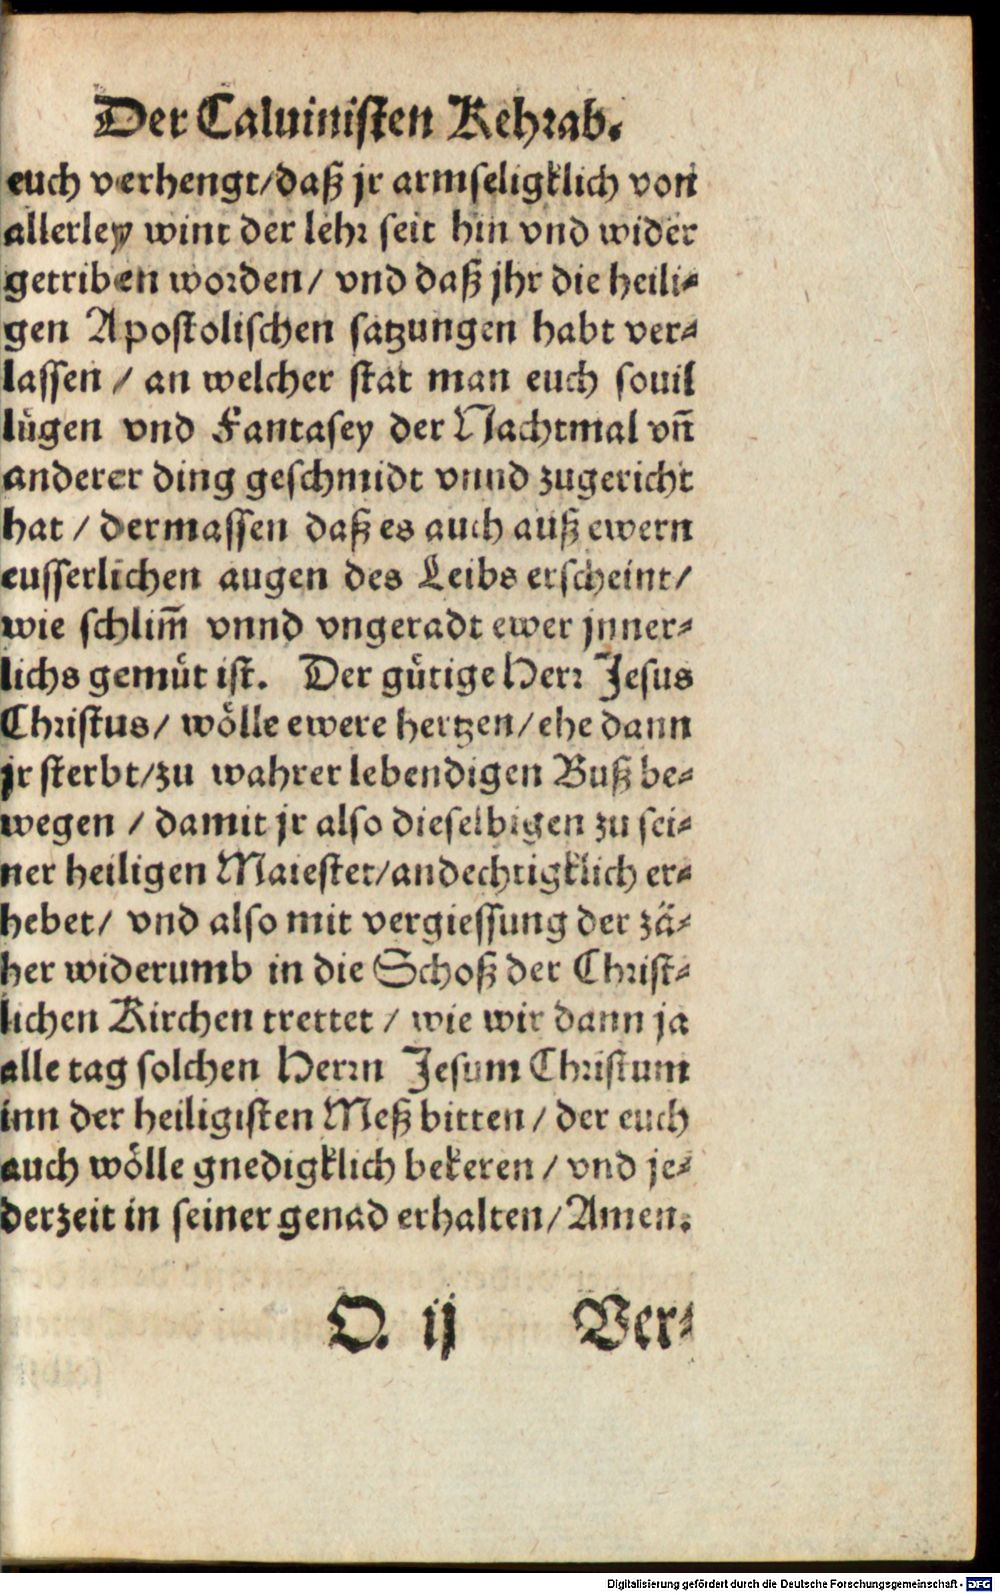 Der Caluinisten Kehrab.
euch verhengt/daß jr armseligklich von
allerley wint der lehr seit hin vnd wider
getriben worden/ vnd daß jhr die heili-
gen Apostolischen satzungen habt ver-
lassen / an welcher stat man euch souil
lügen vnd Fantasey der Nachtmal vñ
anderer ding geschmidt vnnd zugericht
hat / dermassen daß es auch auß ewern
eusserlichen augen des Leibs erscheint/
wie schlim̃ vnnd vngeradt ewer jnner-
lichs gemüt ist. Der gütige Herr Jesus
Christus/ wölle ewere hertzen/ehe dann
jr sterbt/zu wahrer lebendigen Buß be-
wegen / damit jr also dieselbigen zu sei-
ner heiligen Maiestet/andechtigklich er-
hebet/ vnd also mit vergiessung der zä-
her widerumb in die Schoß der Christ-
lichen Kirchen trettet / wie wir dann ja
alle tag solchen Herrn Jesum Christum
inn der heiligisten Meß bitten / der euch
auch wölle gnedigklich bekeren / vnd je-
derzeit in seiner genad erhalten/Amen.
O. ij Ver-
Digitalisierung gefördert durch die Deutsche Forschungsgemeinschaft - DFG